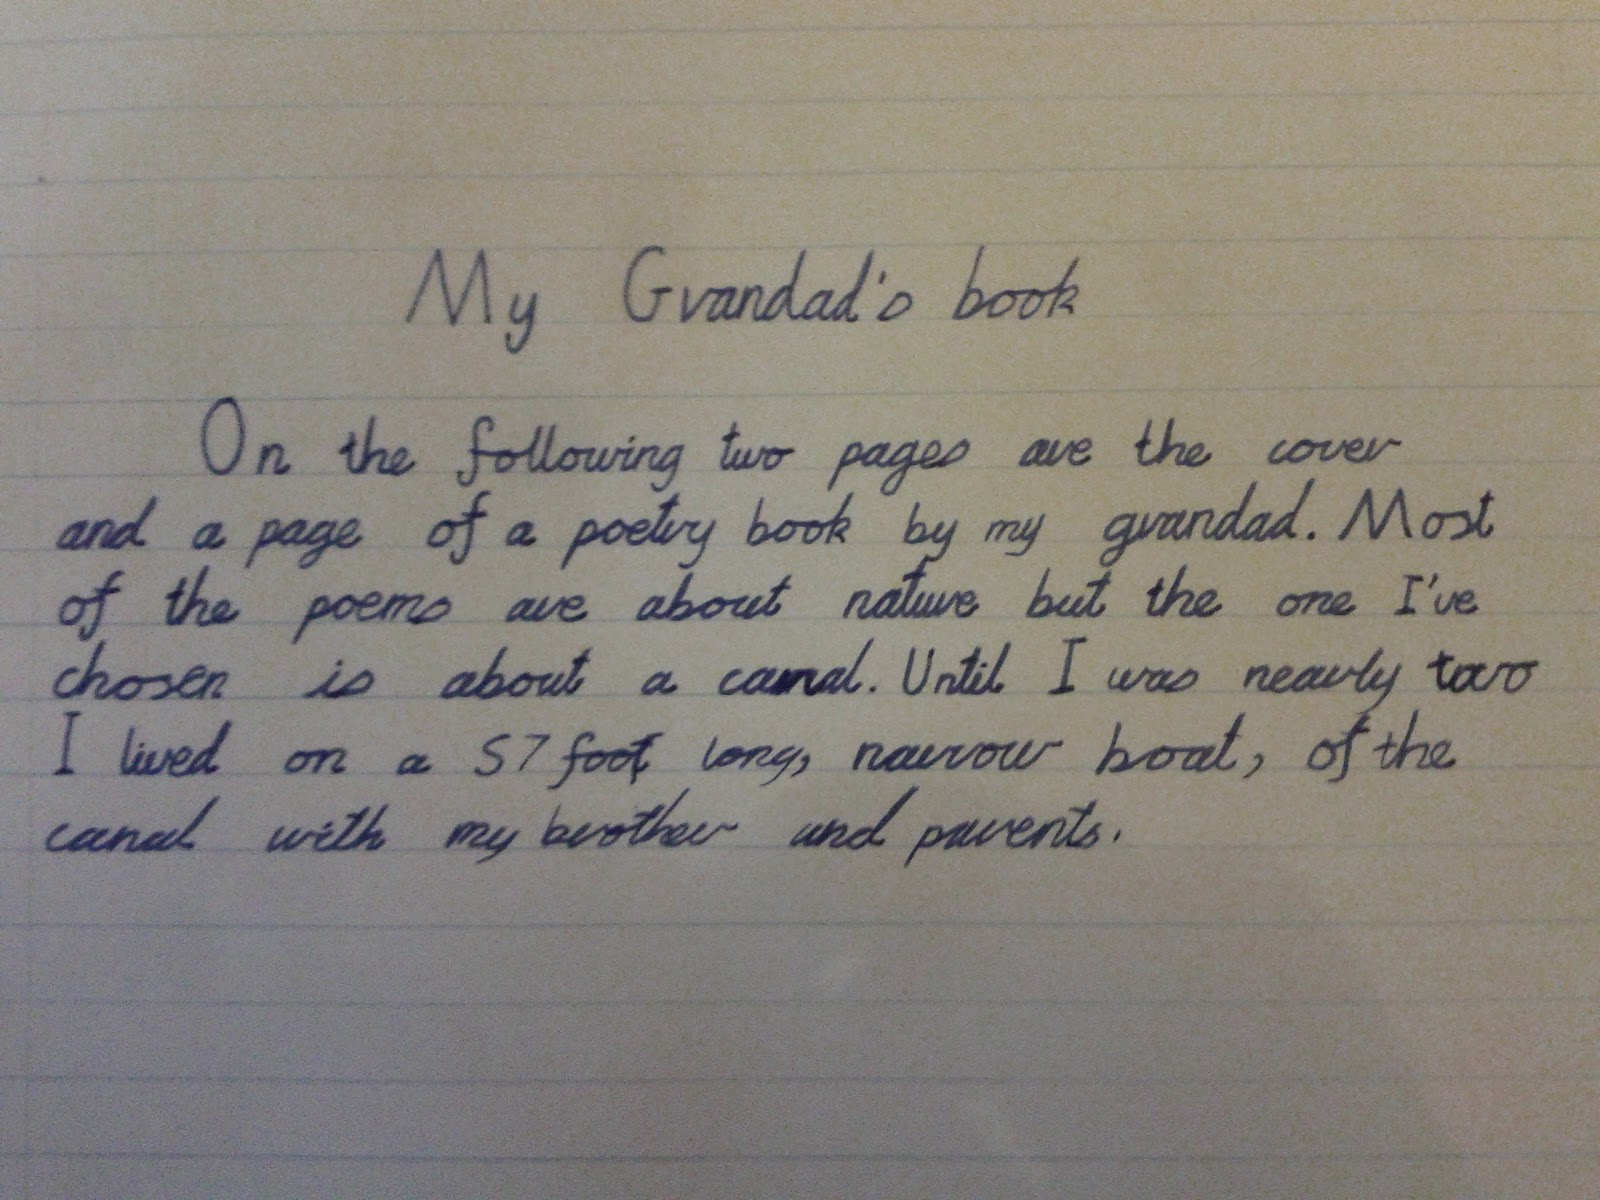 My Grandad's book
On the following two pages are the cover
and a page of a poetry book by my grandad. Most
of the poems are about nature but the one I've
chosen is about a canal. Until I was nearly two
I lived on a 57 foot long, narrow boat, of the
canal with my brother and parents.